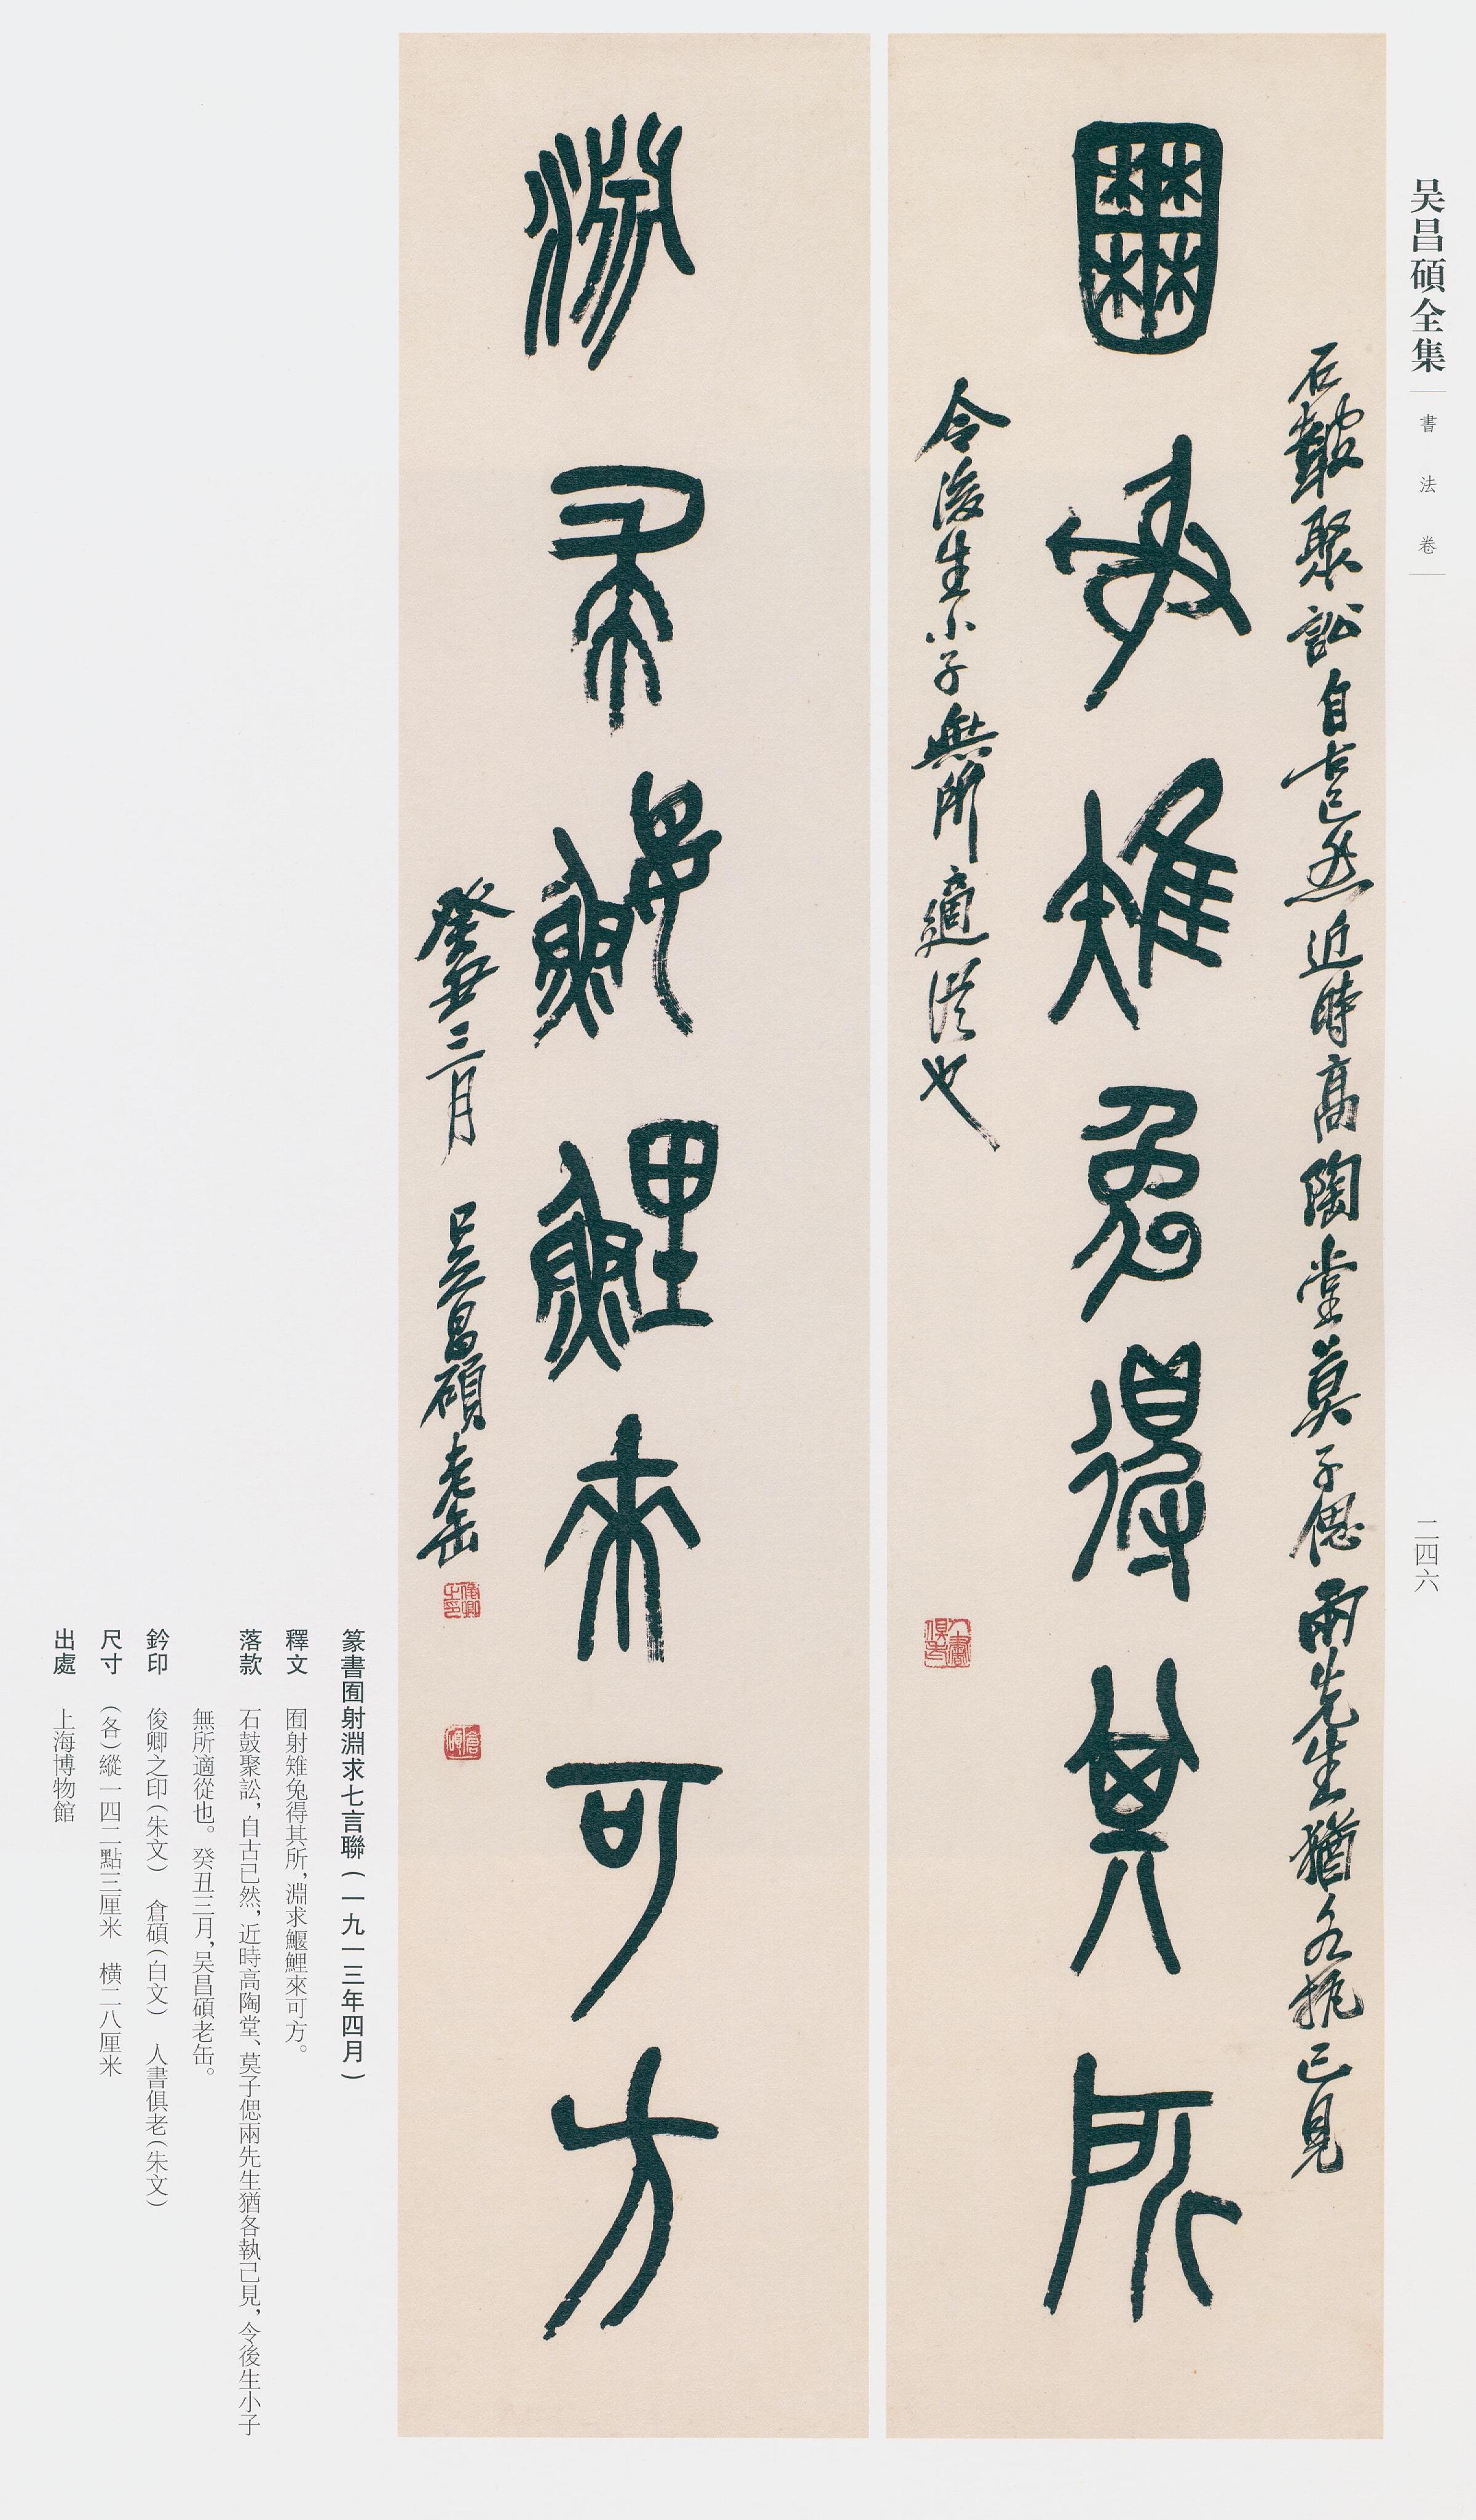 吴昌碩全集
書法卷
二四六
石鼓聚訟自古已然近時高陶堂莫子偲兩先生猶各執己見
囿射雉兔得其所
令後生小子無所適從也
人書俱老
淵求鰋鯉來可方
癸丑三月 吴昌碩老缶
俊卿之印
倉碩
篆書囿射淵求七言聯(一九一三年四月)
釋文 囿射雉兔得其所,淵求鰋鯉來可方。
落款 石鼓聚訟,自古已然,近時高陶堂、莫子偲兩先生猶各執己見,令後生小子
無所適從也。癸丑三月,吴昌碩老缶。
鈐印 俊卿之印(朱文) 倉碩(白文) 人書俱老(朱文)
尺寸 (各)縱一四二點三厘米 橫二八厘米
出處 上海博物館